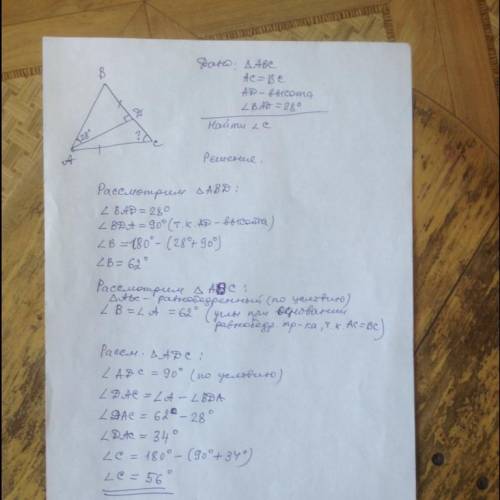 Дано: △ABC
AC = BC
AD - высота
∠BAD = 28°
Найти ∠C
B
D
28°
?
A
C
Решение.
Рассмотрим △ABD:
∠BAD = 28°
∠BDA = 90° (т.к. AD - высота)
∠B = 180° - (28° + 90°)
∠B = 62°
Рассмотрим △ABC:
△ABC - равнобедренный (по условию)
∠B = ∠A = 62° (углы при основании
равнобедр. тр-ка, т.к. AC = BC)
Рассм. △ADC:
∠ADC = 90° (по условию)
∠DAC = ∠A - ∠BDA
∠DAC = 62° - 28°
∠DAC = 34°
∠C = 180° - (90° + 34°)
∠C = 56°